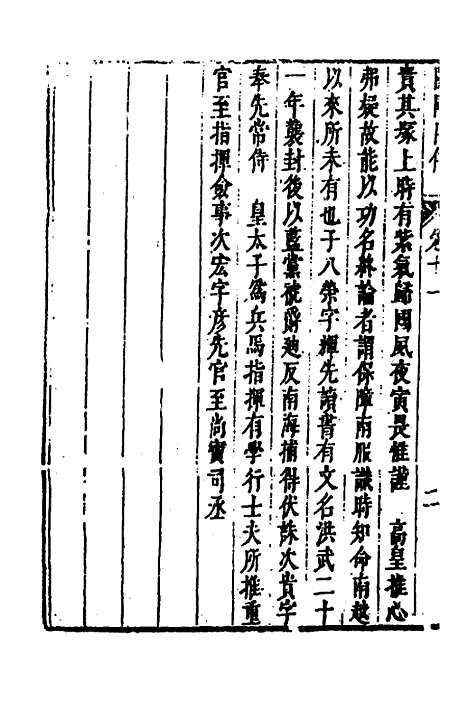 卷十一
二
貴其塚上時有紫氣歸國夙夜寅畏惟謹 高皇推心
弗疑故能以功名終論者謂保障南服識時知命南越
以來所未有也子八榮字擢先讀書有文名洪武二十
一年襲封後以藍黨褫爵廸反南海捕得伏誅次貴字
奉先常侍 皇太子爲兵馬指揮有學行士夫所推重
官至指揮僉事次宏字彥先官至尚寶司丞